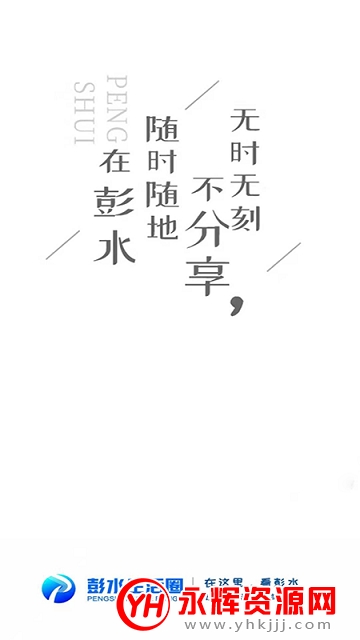 无时无刻
不分享，
随时随地
在彭水
PENG
SHUI
彭水生活圈
在这里，看彭水
永辉资源网
YH
www.yhkjjj.com